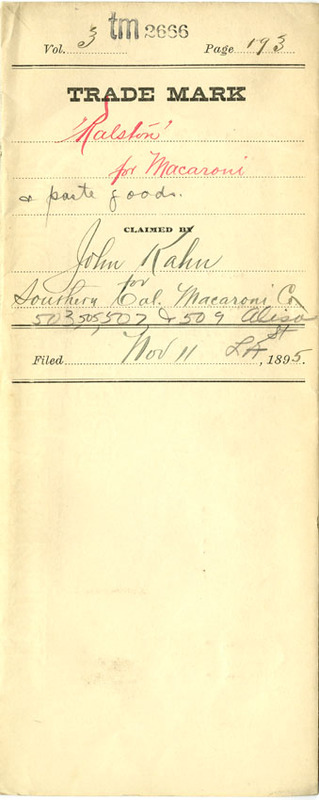 Vol. 3 tm 2666 Page 193
TRADE MARK
'Ralston'
for Macaroni
& paste goods.
CLAIMED BY
John Kahn
for
Southern Cal. Macaroni Co
503, 505, 507 & 509 Aliso St
Filed Nov 11 LA, 1895.